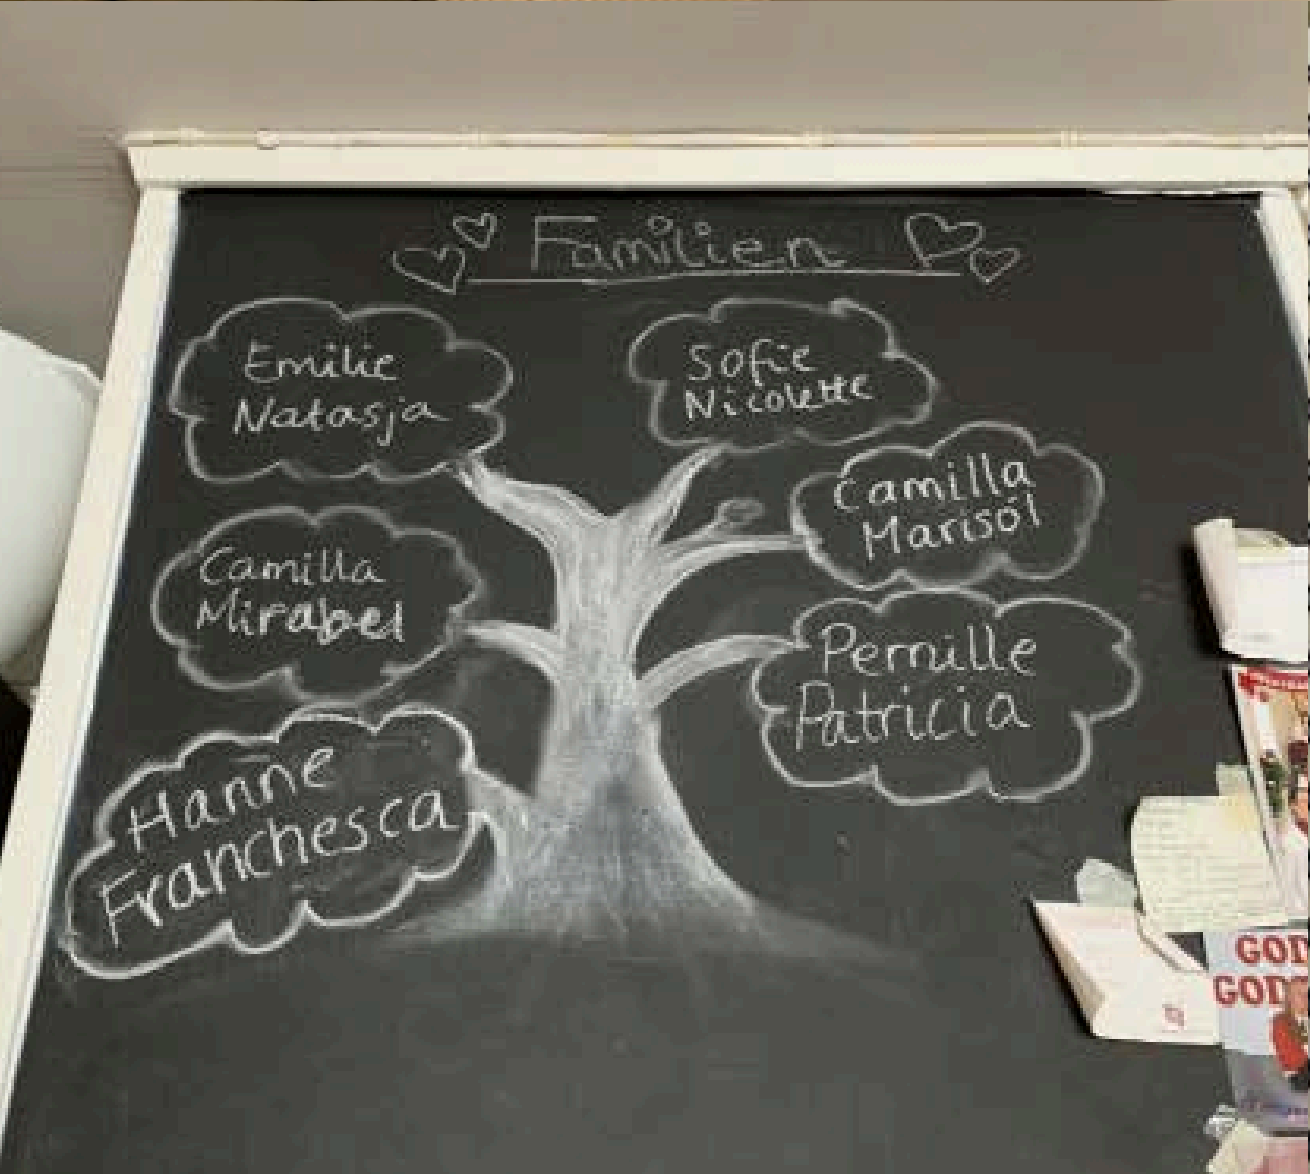 Familien
Emilie
Natasja
Sofie
Nicolette
Camilla
Marisol
Camilla
Mirabel
Pernille
Patricia
Hanne
Franchesca
GOD